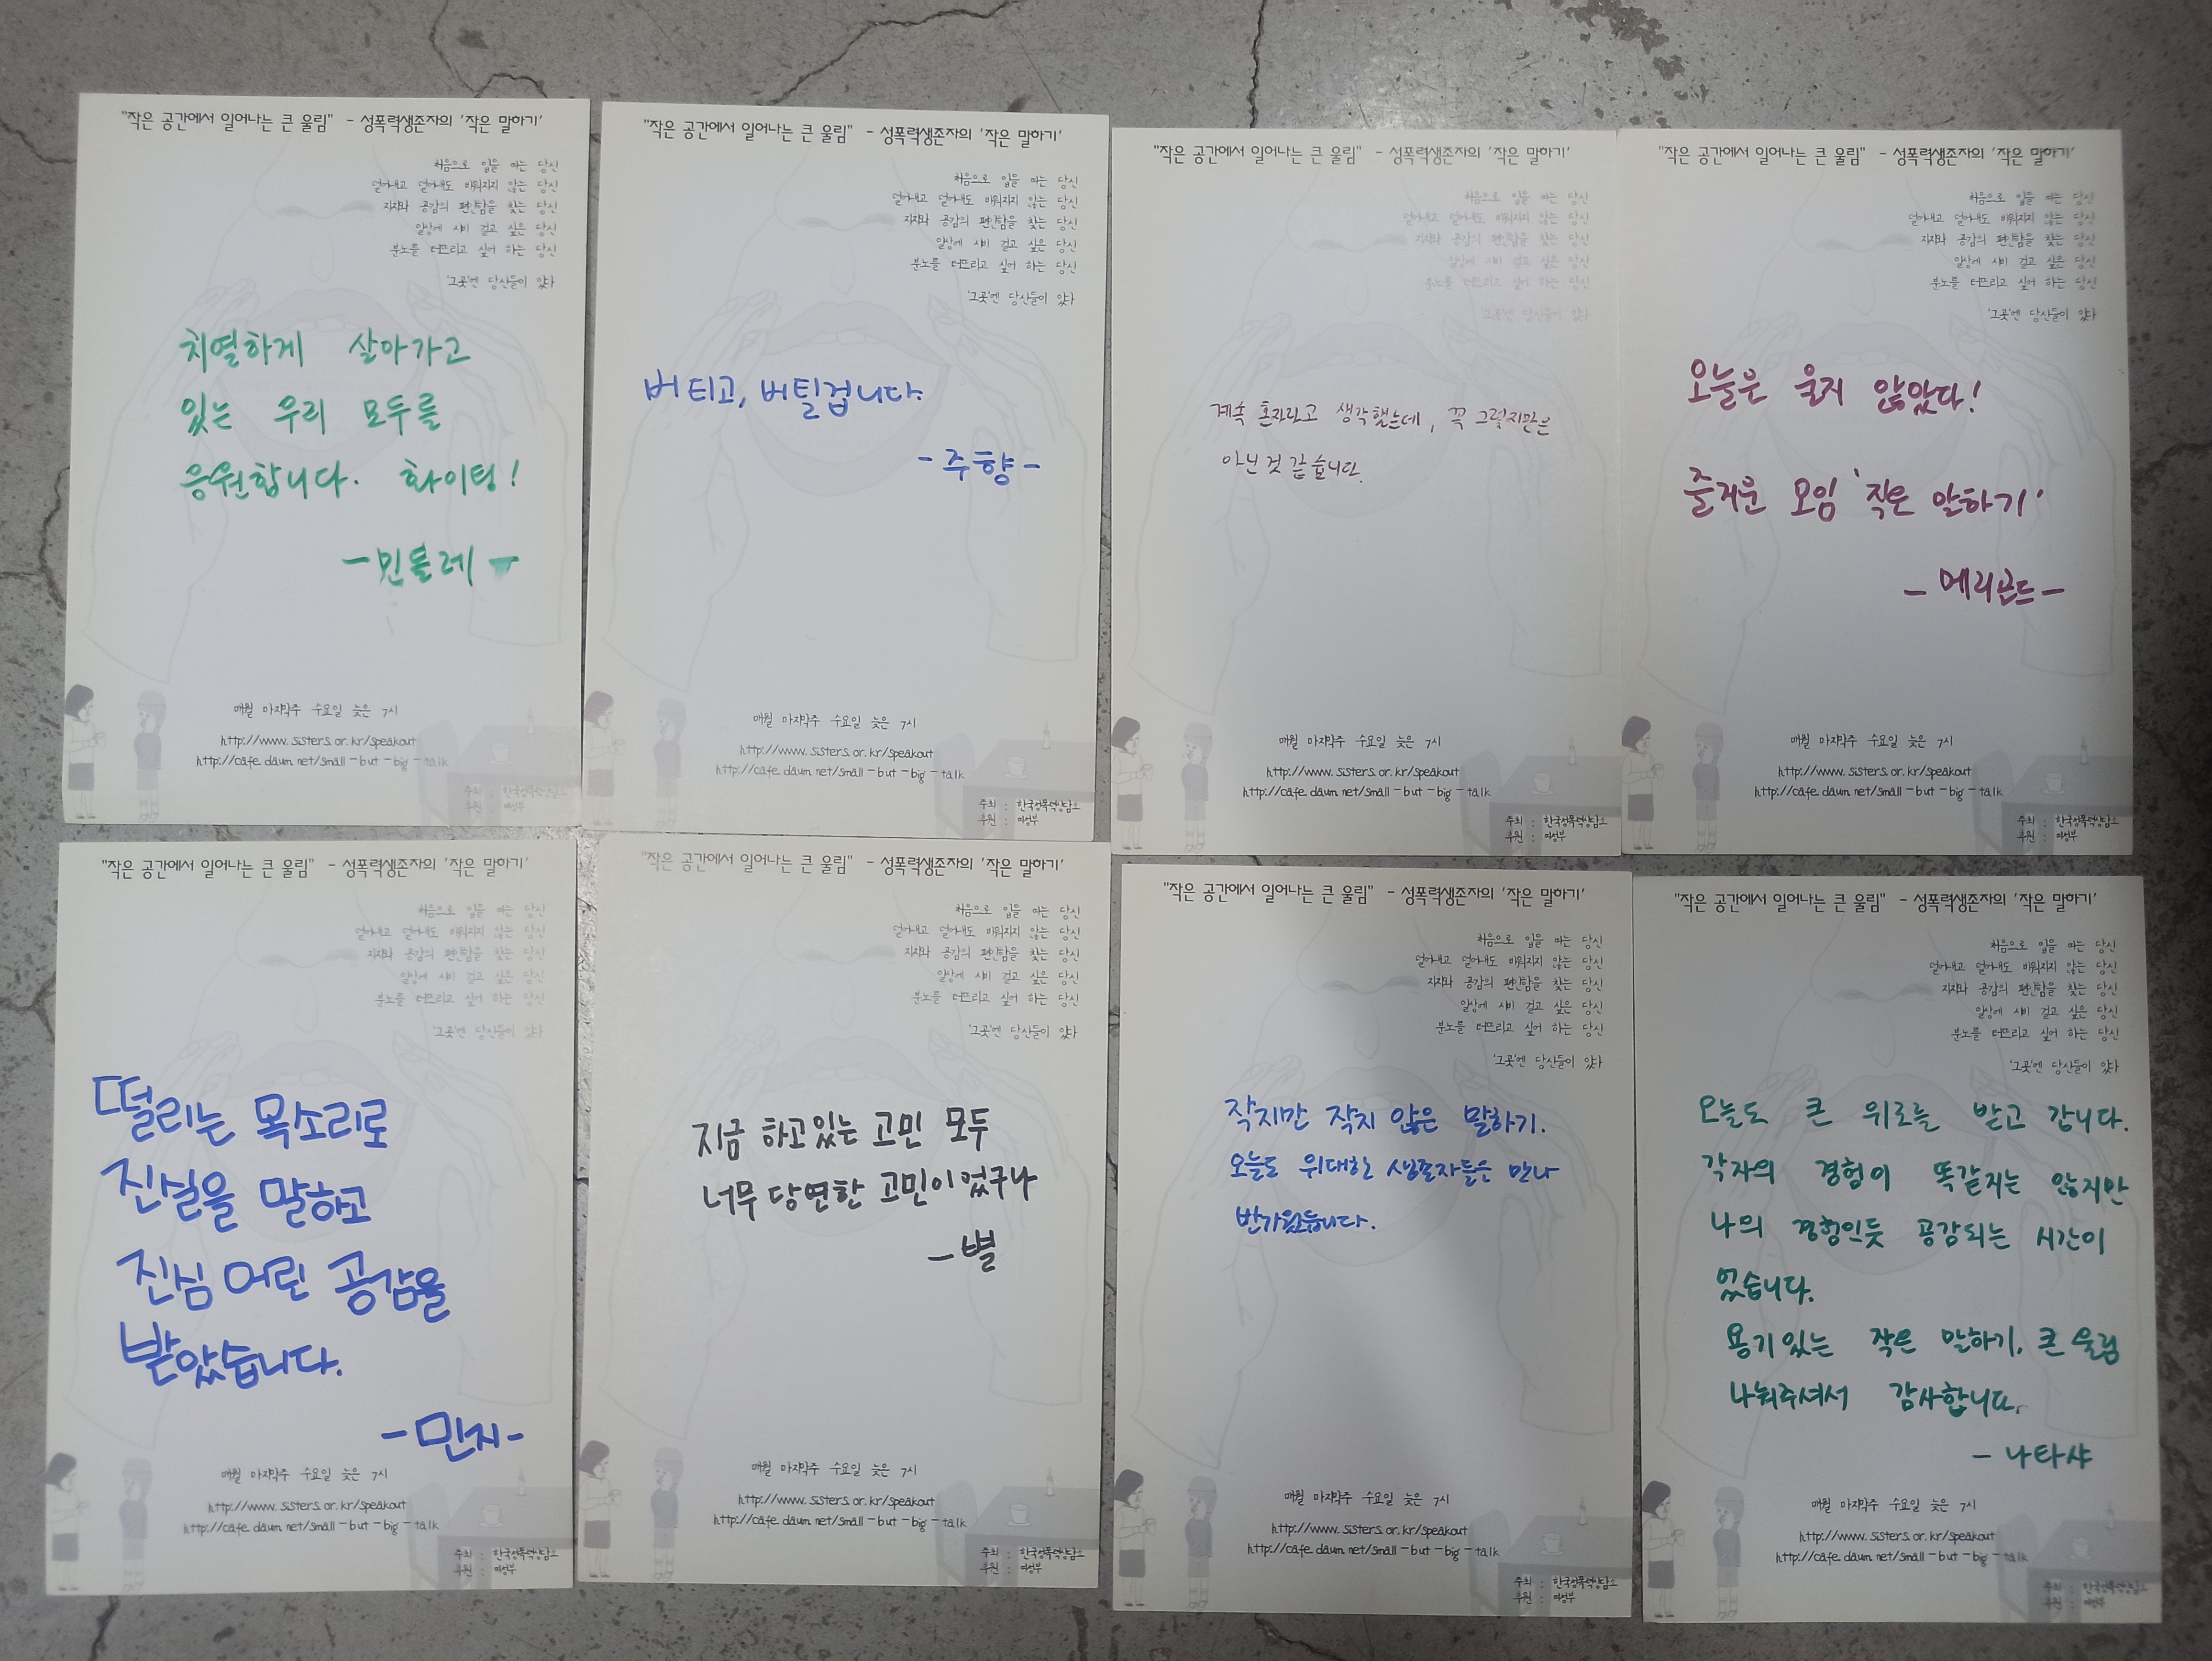 "작은 공간에서 일어나는 큰 울림" - 성폭력생존자의 '작은 말하기'
처음으로 입을 떼는 당신
덜어내고 덜어내도 비워지지 않는 당신
지지와 공감의 편안함을 찾는 당신
일상에 시비 걸고 싶은 당신
분노를 터뜨리고 싶어 하는 당신
'그곳'엔 당신들이 있다
치열하게 살아가고
있는 우리 모두를
응원합니다. 화이팅!
-민들레-
매월 마지막주 수요일 늦은 7시
http://www.sisters.or.kr/speakout
http://cafe.daum.net/small-but-big-talk
주최 : 한국성폭력상담소
후원 : 여성부
"작은 공간에서 일어나는 큰 울림" - 성폭력생존자의 '작은 말하기'
처음으로 입을 떼는 당신
덜어내고 덜어내도 비워지지 않는 당신
지지와 공감의 편안함을 찾는 당신
일상에 시비 걸고 싶은 당신
분노를 터뜨리고 싶어 하는 당신
'그곳'엔 당신들이 있다
버티고, 버틸겁니다.
-주향-
매월 마지막주 수요일 늦은 7시
http://www.sisters.or.kr/speakout
http://cafe.daum.net/small-but-big-talk
주최 : 한국성폭력상담소
후원 : 여성부
"작은 공간에서 일어나는 큰 울림" - 성폭력생존자의 '작은 말하기'
처음으로 입을 떼는 당신
덜어내고 덜어내도 비워지지 않는 당신
지지와 공감의 편안함을 찾는 당신
일상에 시비 걸고 싶은 당신
분노를 터뜨리고 싶어 하는 당신
'그곳'엔 당신들이 있다
계속 혼자라고 생각했는데, 꼭 그렇지만은
아닌 것 같습니다.
매월 마지막주 수요일 늦은 7시
http://www.sisters.or.kr/speakout
http://cafe.daum.net/small-but-big-talk
주최 : 한국성폭력상담소
후원 : 여성부
"작은 공간에서 일어나는 큰 울림" - 성폭력생존자의 '작은 말하기'
처음으로 입을 떼는 당신
덜어내고 덜어내도 비워지지 않는 당신
지지와 공감의 편안함을 찾는 당신
일상에 시비 걸고 싶은 당신
분노를 터뜨리고 싶어 하는 당신
'그곳'엔 당신들이 있다
오늘은 울지 않았다!
즐거운 모임 '작은 말하기'
- 메리골드 -
매월 마지막주 수요일 늦은 7시
http://www.sisters.or.kr/speakout
http://cafe.daum.net/small-but-big-talk
주최 : 한국성폭력상담소
후원 : 여성부
"작은 공간에서 일어나는 큰 울림" - 성폭력생존자의 '작은 말하기'
처음으로 입을 떼는 당신
덜어내고 덜어내도 비워지지 않는 당신
지지와 공감의 편안함을 찾는 당신
일상에 시비 걸고 싶은 당신
분노를 터뜨리고 싶어 하는 당신
'그곳'엔 당신들이 있다
떨리는 목소리로
진실을 말하고
진심 어린 공감을
받았습니다.
-민지-
매월 마지막주 수요일 늦은 7시
http://www.sisters.or.kr/speakout
http://cafe.daum.net/small-but-big-talk
주최 : 한국성폭력상담소
후원 : 여성부
"작은 공간에서 일어나는 큰 울림" - 성폭력생존자의 '작은 말하기'
처음으로 입을 떼는 당신
덜어내고 덜어내도 비워지지 않는 당신
지지와 공감의 편안함을 찾는 당신
일상에 시비 걸고 싶은 당신
분노를 터뜨리고 싶어 하는 당신
'그곳'엔 당신들이 있다
지금 하고있는 고민 모두
너무 당연한 고민이었구나
-별
매월 마지막주 수요일 늦은 7시
http://www.sisters.or.kr/speakout
http://cafe.daum.net/small-but-big-talk
주최 : 한국성폭력상담소
후원 : 여성부
"작은 공간에서 일어나는 큰 울림" - 성폭력생존자의 '작은 말하기'
처음으로 입을 떼는 당신
덜어내고 덜어내도 비워지지 않는 당신
지지와 공감의 편안함을 찾는 당신
일상에 시비 걸고 싶은 당신
분노를 터뜨리고 싶어 하는 당신
'그곳'엔 당신들이 있다
작지만 작지 않은 말하기.
오늘도 위대한 생존자들을 만나
반가웠습니다.
매월 마지막주 수요일 늦은 7시
http://www.sisters.or.kr/speakout
http://cafe.daum.net/small-but-big-talk
주최 : 한국성폭력상담소
후원 : 여성부
"작은 공간에서 일어나는 큰 울림" - 성폭력생존자의 '작은 말하기'
처음으로 입을 떼는 당신
덜어내고 덜어내도 비워지지 않는 당신
지지와 공감의 편안함을 찾는 당신
일상에 시비 걸고 싶은 당신
분노를 터뜨리고 싶어 하는 당신
'그곳'엔 당신들이 있다
오늘도 큰 위로를 받고 갑니다.
각자의 경험이 똑같지는 않지만
나의 경험인듯 공감되는 시간이
었습니다.
용기있는 작은 말하기, 큰 울림
나눠주셔서 감사합니다.
- 나타샤
매월 마지막주 수요일 늦은 7시
http://www.sisters.or.kr/speakout
http://cafe.daum.net/small-but-big-talk
주최 : 한국성폭력상담소
후원 : 여성부